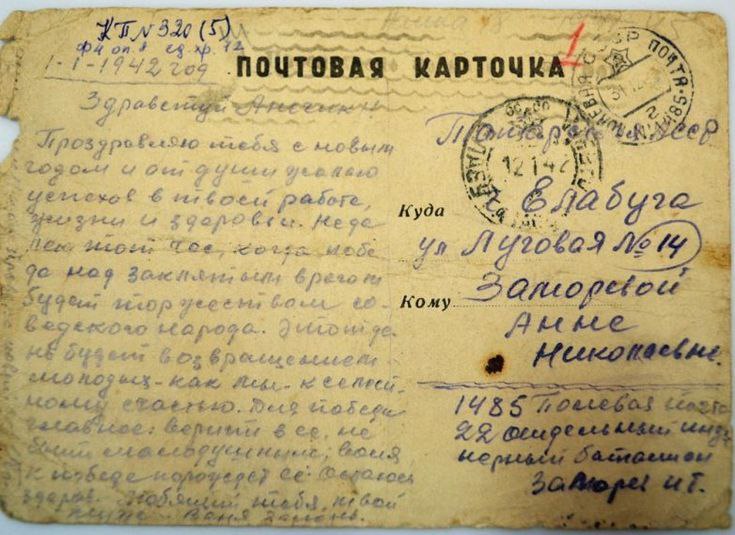 КП № 320 (5)
Ф 4 оп. 1 ед. хр. 12
1-1-1942 год
ПОЧТОВАЯ КАРТОЧКА
1
СССР ПОЧТА
ПОЛЕВАЯ
№ 1485
12 1 42
Здравствуй
Проздравляю тебя с новым
годом и от души желаю
успехов в твоей работе,
жизни и здоровьи. Неда
лек тот час, когда побе
да над заклятым врагом
будет торжеством со-
ветского народа. Этот
не будет возвращением
молодых - как мы - к
счастью. Для победы
главное: верить в ее, не
быть малодушным; воля
к победе порождает ее. Остаюсь
здоров. Любящий тебя, твой
Ваня
Татарская ССР
Куда Елабуга
ул Луговая № 14
Кому Заморевой
Анне
Николаевне.
1485 Полевая почта
22 отдельный инже
нерный баталион
Заморев И.Г.